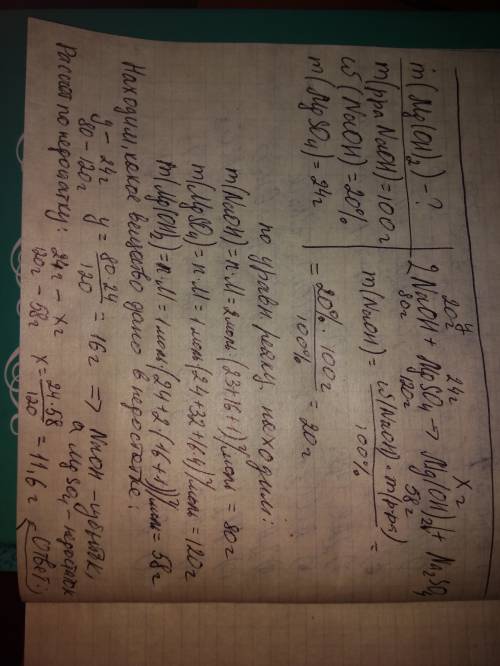 m(Mg(OH)₂) - ?
m(р-ра NaOH) = 100г
ω(NaOH) = 20%
m(MgSO₄) = 24г
20г y 24г xг
2NaOH + MgSO₄ → Mg(OH)₂↓ + Na₂SO₄
80г 120г 58г
m(NaOH) = ω(NaOH) · m(р-ра) / 100% =
= 20% · 100г / 100% = 20г
по уравн. реакц. находим:
m(NaOH) = n·M = 2моль · (23+16+1)г/моль = 80г
m(MgSO₄) = n·M = 1моль · (24+32+16·4)г/моль = 120г
m(Mg(OH)₂) = n·M = 1моль · (24+2·(16+1))г/моль = 58г
Находим, какое вещество дано в недостатке:
y - 24г
80 - 120г y = 80·24 / 120 = 16г => NaOH - избыток,
а MgSO₄ - недостаток
Расчёт по недостатку: 24г - xг
120г - 58г x = 24·58 / 120 = 11,6г ← Ответ.